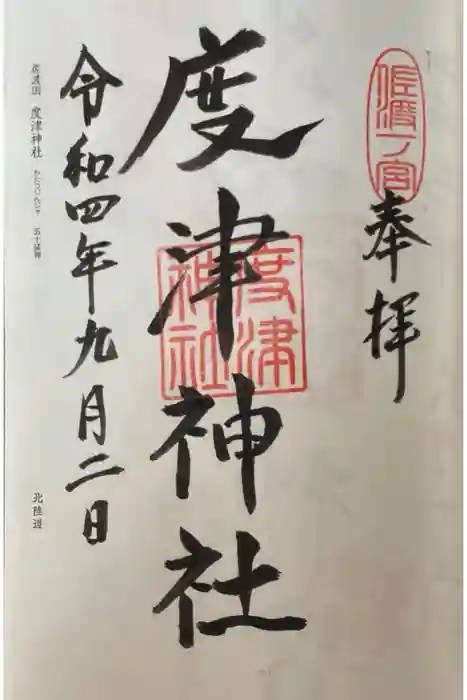 佐渡一ノ宮
奉拝
度津神社
度津
神社
令和四年九月二日
佐渡国 度津神社 わたつじんじゃ 五十猛命
北陸道